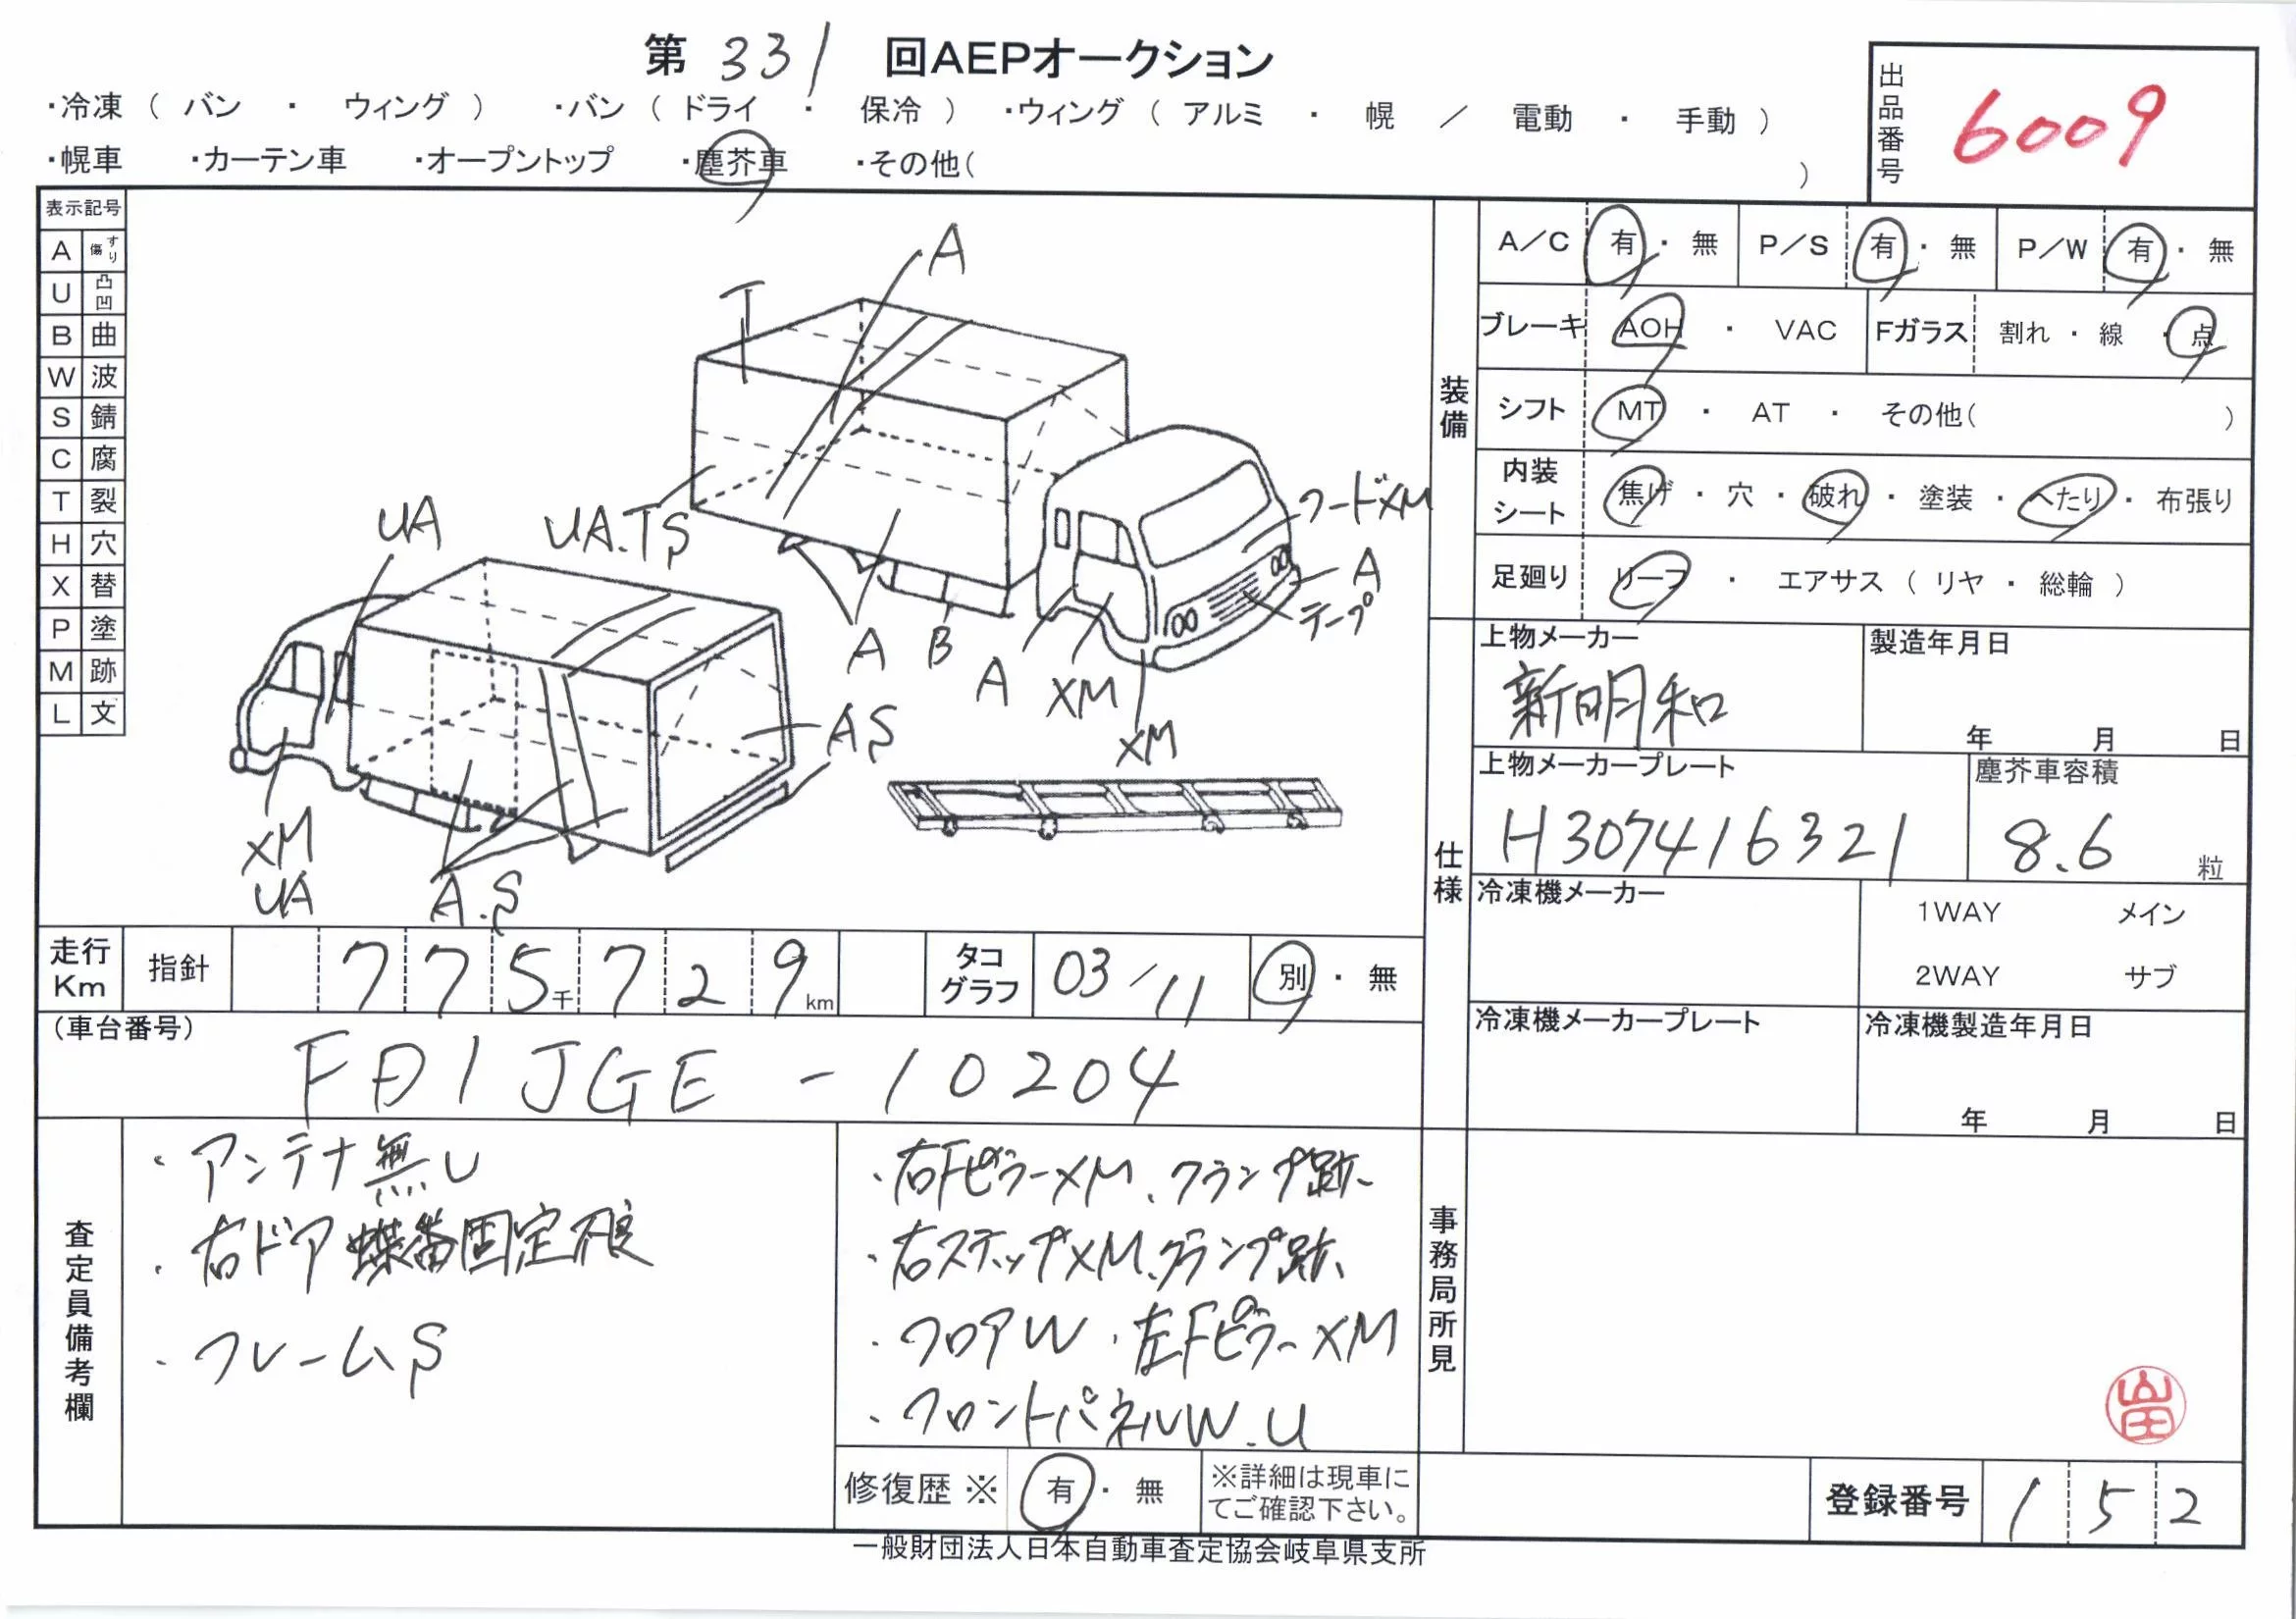 第 331 回AEPオークション
出品番号 6009
・冷凍 ( バン ・ ウィング ) ・バン ( ドライ ・ 保冷 ) ・ウィング ( アルミ ・ 幌 ／ 電動 ・ 手動 )
・幌車 ・カーテン車 ・オープントップ ・塵芥車 ・その他( )
表示記号
A すり傷
U 凸凹
B 曲
W 波
S 錆
C 腐
T 裂
H 穴
X 替
P 塗
M 跡
L 文
A
T
UA
UA.TS
フードXM
A
テープ
A
B
A
XM
XM
AS
XM
UA
A.S
装備
A／C 有 ・ 無 P／S 有 ・ 無 P／W 有 ・ 無
ブレーキ AOH ・ VAC Fガラス 割れ ・ 線 ・ 点
シフト MT ・ AT ・ その他( )
内装シート 焦げ ・ 穴 ・ 破れ ・ 塗装 ・ へたり ・ 布張り
足廻り リーフ ・ エアサス ( リヤ ・ 総輪 )
仕様
上物メーカー 新明和
製造年月日 年 月 日
上物メーカープレート H307416321
塵芥車容積 8.6 粒
冷凍機メーカー
1WAY メイン
2WAY サブ
冷凍機メーカープレート
冷凍機製造年月日 年 月 日
走行Km 指針 775千729km タコグラフ 03/11 別 ・ 無
(車台番号)
FD1JGE-10204
査定員備考欄
・アンテナ無し
・右ドア蝶番固定不良
・フレームS
・右FピラーXM、クランプ跡
・右ステップXM、クランプ跡
・フロアW ・左FピラーXM
・フロントパネルW.U
修復歴 ※ 有 ・ 無
※詳細は現車にてご確認下さい。
事務局所見
登録番号 152
一般財団法人日本自動車査定協会岐阜県支所